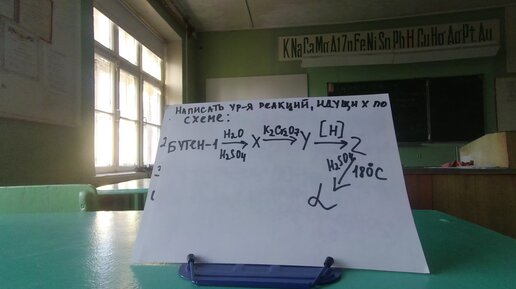 K Na Ca Mg Al Zn Fe Ni Sn Pb H Cu Hg Ag Pt Au
НАПИСАТЬ УР-Я РЕАКЦИЙ, ИДУЩИХ ПО
СХЕМЕ:
БУТЕН-1 H₂O H₂SO₄ → X K₂Cr₂O₇ → Y [H] → Z
H₂SO₄ 180°C
α